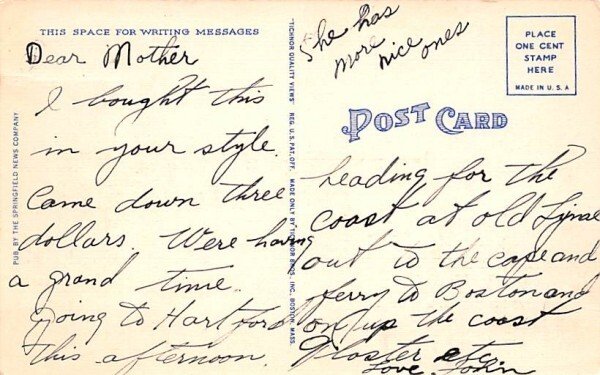 THIS SPACE FOR WRITING MESSAGES
Dear Mother
I bought this
in your style.
Came down three
dollars. Were having
a grand time.
Going to Hartford
this afternoon.
heading for the
coast at old Lyme
out to the cape and
ferry to Boston and
on up the coast
Gloster etc.
Love, John
She has
more
nice ones
POST CARD
PLACE
ONE CENT
STAMP
HERE
MADE IN U.S.A
PUB. BY THE SPRINGFIELD NEWS COMPANY
"TICHNOR QUALITY VIEWS" REG. U. S. PAT. OFF. MADE ONLY BY TICHNOR BROS. INC., BOSTON, MASS.